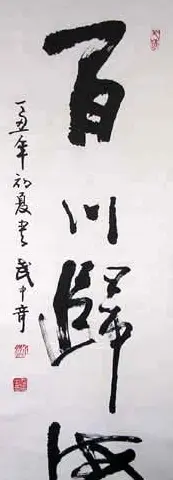 百川歸海
丁丑年初夏書 武中奇